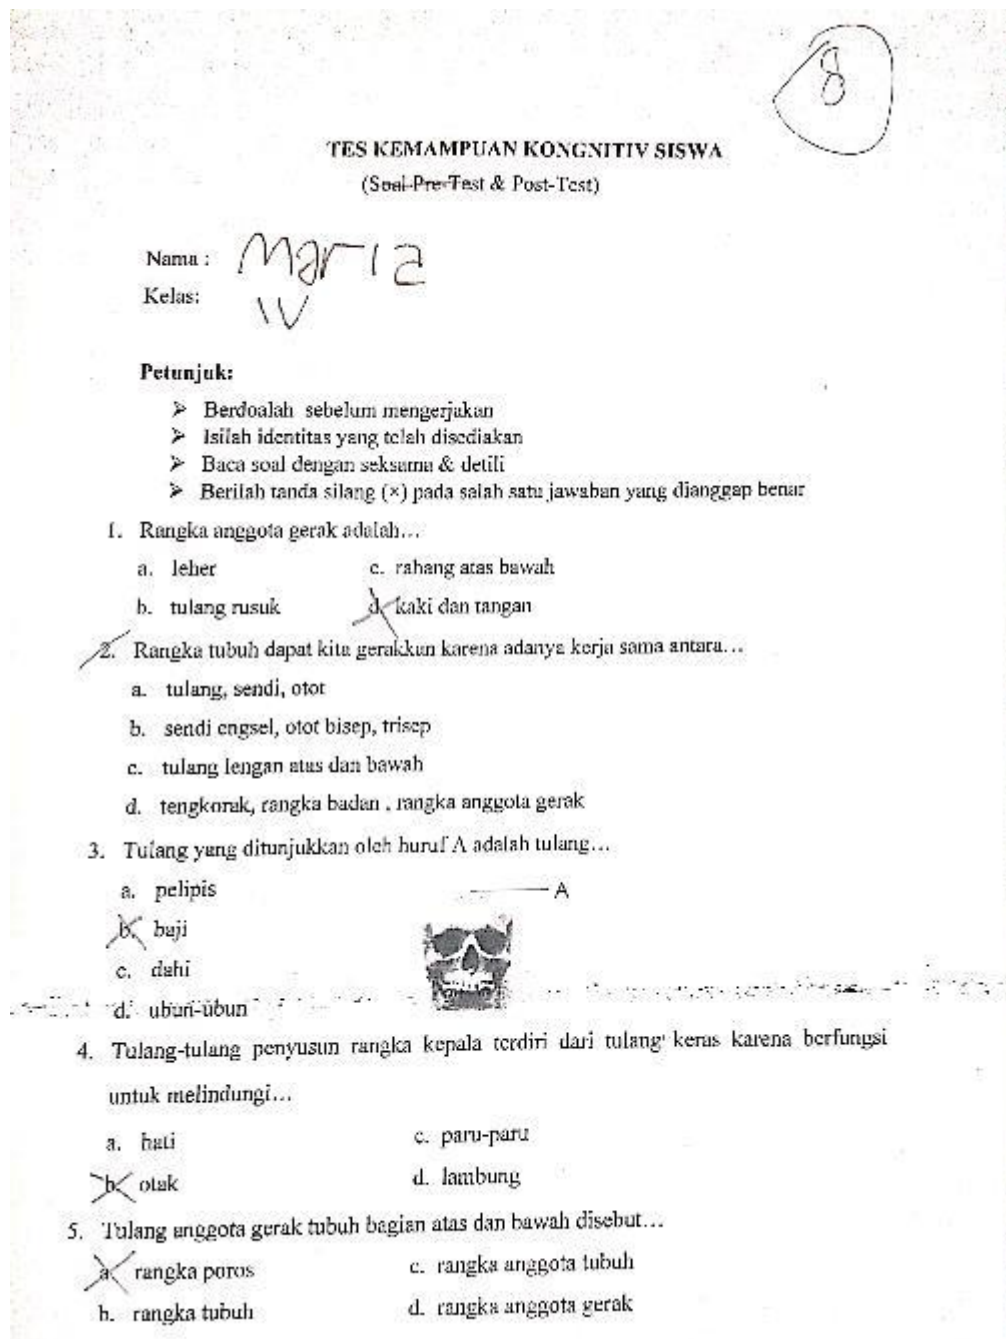 8
TES KEMAMPUAN KONGNITIV SISWA
(Soal Pre-Test & Post-Test)
Nama : Maria
Kelas: IV
Petunjuk:
➢ Berdoalah sebelum mengerjakan
➢ Isilah identitas yang telah disediakan
➢ Baca soal dengan seksama & detili
➢ Berilah tanda silang (×) pada salah satu jawaban yang dianggap benar
1. Rangka anggota gerak adalah…
a. leher c. rahang atas bawah
b. tulang rusuk d. kaki dan tangan
2. Rangka tubuh dapat kita gerakkan karena adanya kerja sama antara…
a. tulang, sendi, otot
b. sendi engsel, otot bisep, trisep
c. tulang lengan atas dan bawah
d. tengkorak, rangka badan , rangka anggota gerak
3. Tulang yang ditunjukkan oleh huruf A adalah tulang…
a. pelipis
A
b. baji
c. dahi
d. ubun-ubun
4. Tulang-tulang penyusun rangka kepala terdiri dari tulang keras karena berfungsi
untuk melindungi…
a. hati c. paru-paru
b. otak d. lambung
5. Tulang anggota gerak tubuh bagian atas dan bawah disebut…
a. rangka poros c. rangka anggota tubuh
b. rangka tubuh d. rangka anggota gerak